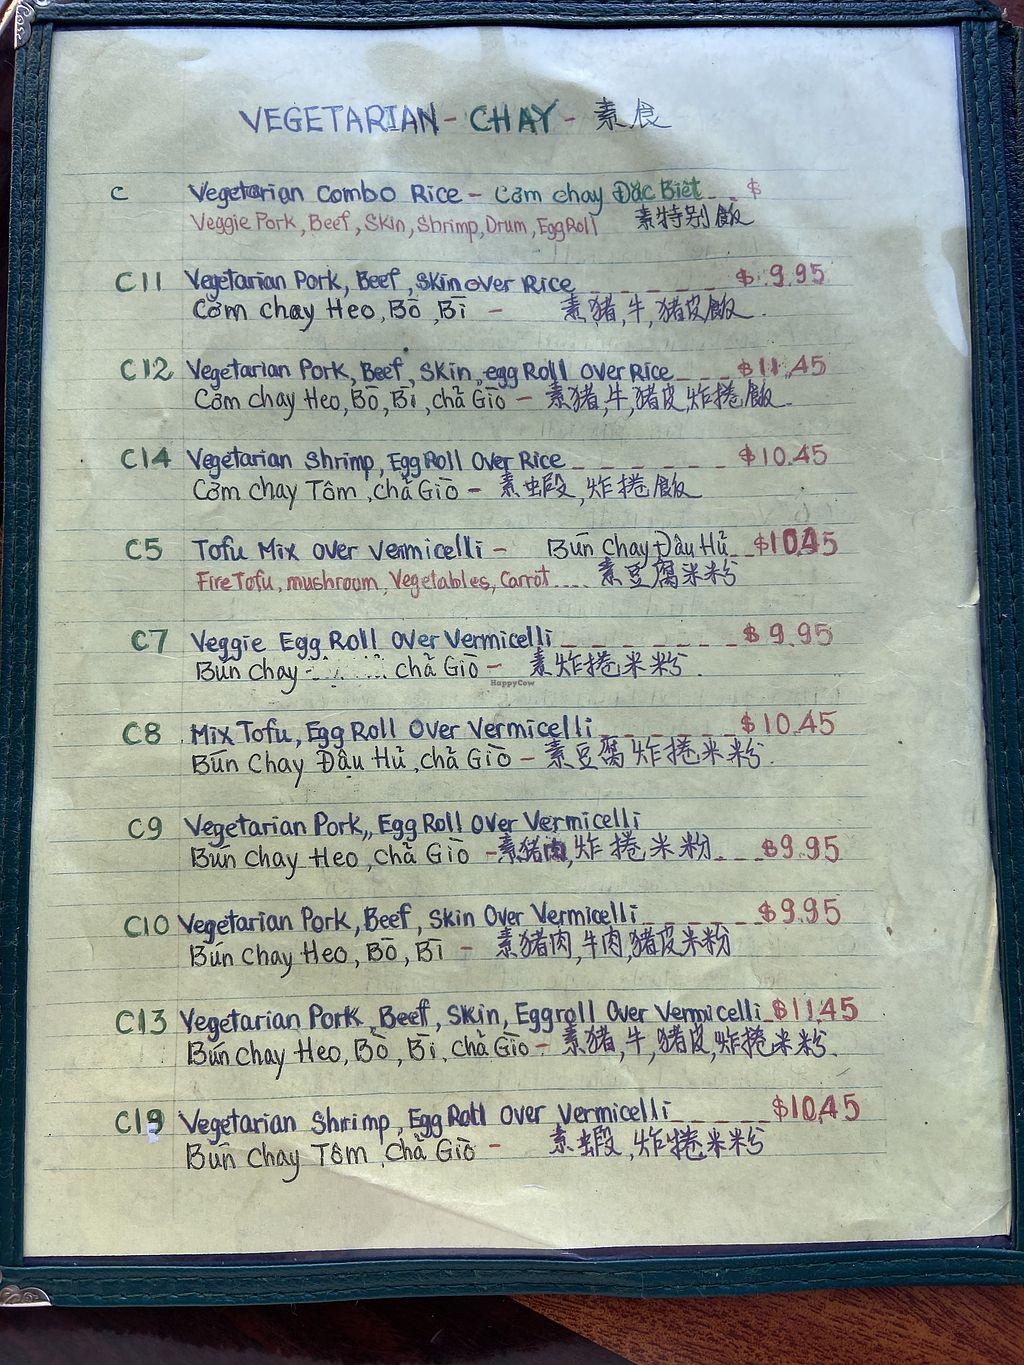 VEGETARIAN - CHAY - 素食
C Vegetarian Combo Rice - Cơm chay Đặc Biệt $
Veggie Pork, Beef, Skin, Shrimp, Drum, Egg Roll 素特别飯
C11 Vegetarian Pork, Beef, Skin over Rice $ 9.95
Cơm chay Heo, Bò, Bì - 素猪,牛,猪皮飯
C12 Vegetarian Pork, Beef, Skin, egg Roll Over Rice $11.45
Cơm chay Heo, Bò, Bì, chả Giò - 素猪,牛,猪皮,炸捲飯
C14 Vegetarian Shrimp, Egg Roll Over Rice $10.45
Cơm chay Tôm, chả Giò - 素虾,炸捲飯
C5 Tofu Mix over vermicelli - Bún Chay Đậu Hủ $10.45
Fire Tofu, mushroom, Vegetables, Carrot .... 素豆腐米粉
C7 Veggie Egg Roll Over Vermicelli $ 9.95
Bún Chay chả Giò - 素炸捲米粉
C8 Mix Tofu, Egg Roll Over Vermicelli $10.45
Bún Chay Đậu Hủ, chả Giò - 素豆腐炸捲米粉
C9 Vegetarian Pork,, Egg Roll Over Vermicelli
Bún Chay Heo, chả Giò - 素猪肉,炸捲米粉 $9.95
C10 Vegetarian Pork, Beef, Skin Over Vermicelli $9.95
Bún Chay Heo, Bò, Bì - 素猪肉,牛肉,猪皮米粉
C13 Vegetarian Pork, Beef, Skin, Eggroll Over Vermicelli $11.45
Bún Chay Heo, Bò, Bì, Chả Giò - 素猪,牛,猪皮,炸捲米粉
C19 Vegetarian Shrimp, Egg Roll Over Vermicelli $10.45
Bún Chay Tôm, Chả Giò - 素蝦,炸捲米粉
HappyCow